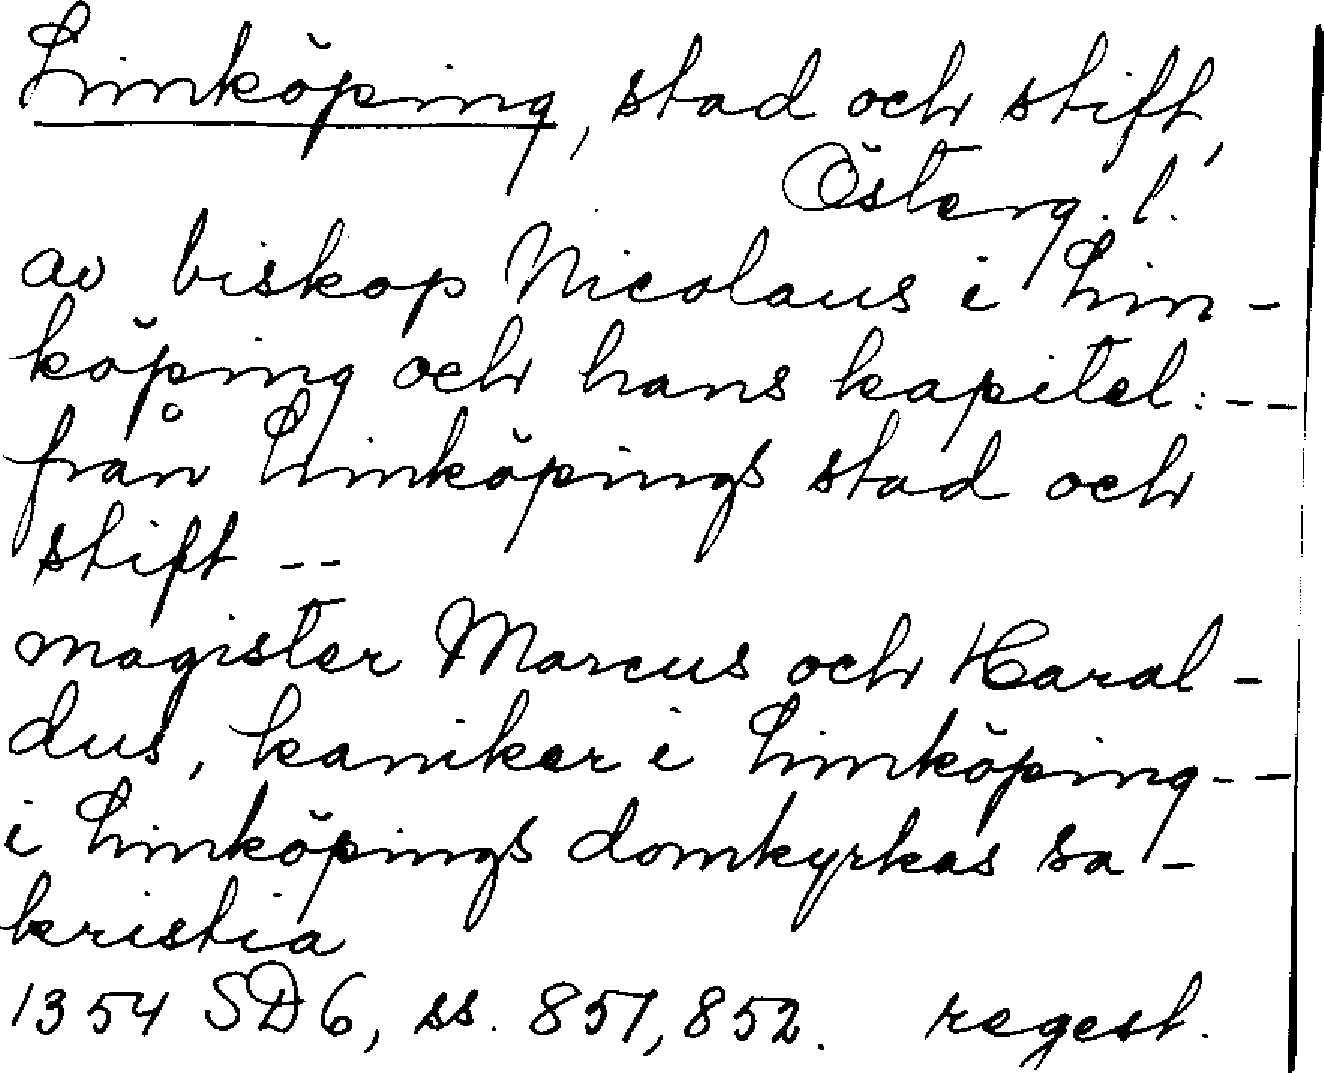 Linköping, stad och stift,
Österg. l.
av biskop Nicolaus i Lin-
köping och hans kapitel: --
från Linköpings stad och
stift --
magister Marcus och Haral-
dus, kaniker i Linköping --
i Linköpings domkyrkas sa-
kristia
1354 SD6, ss. 851, 852. regest.